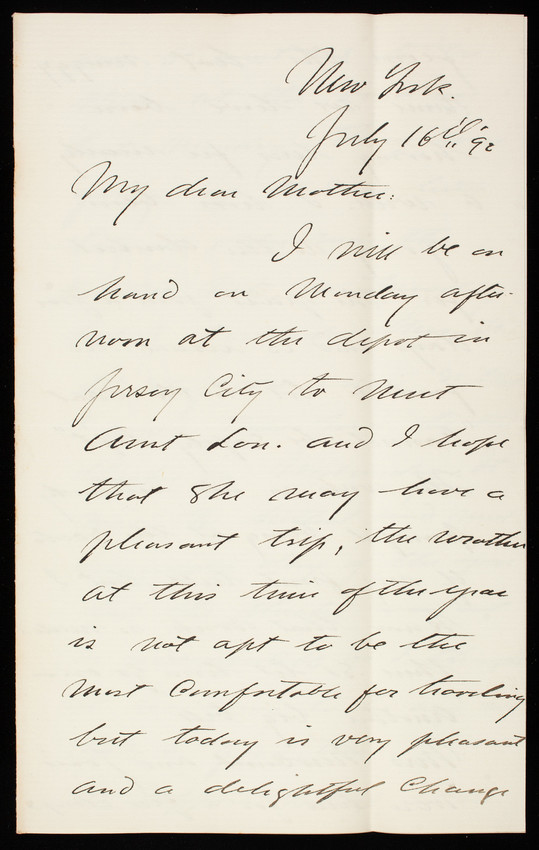 New York.
July 16th "92
My dear Mother:
I will be on
hand on Monday after-
noon at the depot in
Jersey City to meet
Aunt Lou. and I hope
that She may have a
pleasant trip, the weather
at this time of the year
is not apt to be the
most Comfortable for traveling
but today is very pleasant
and a delightful Change